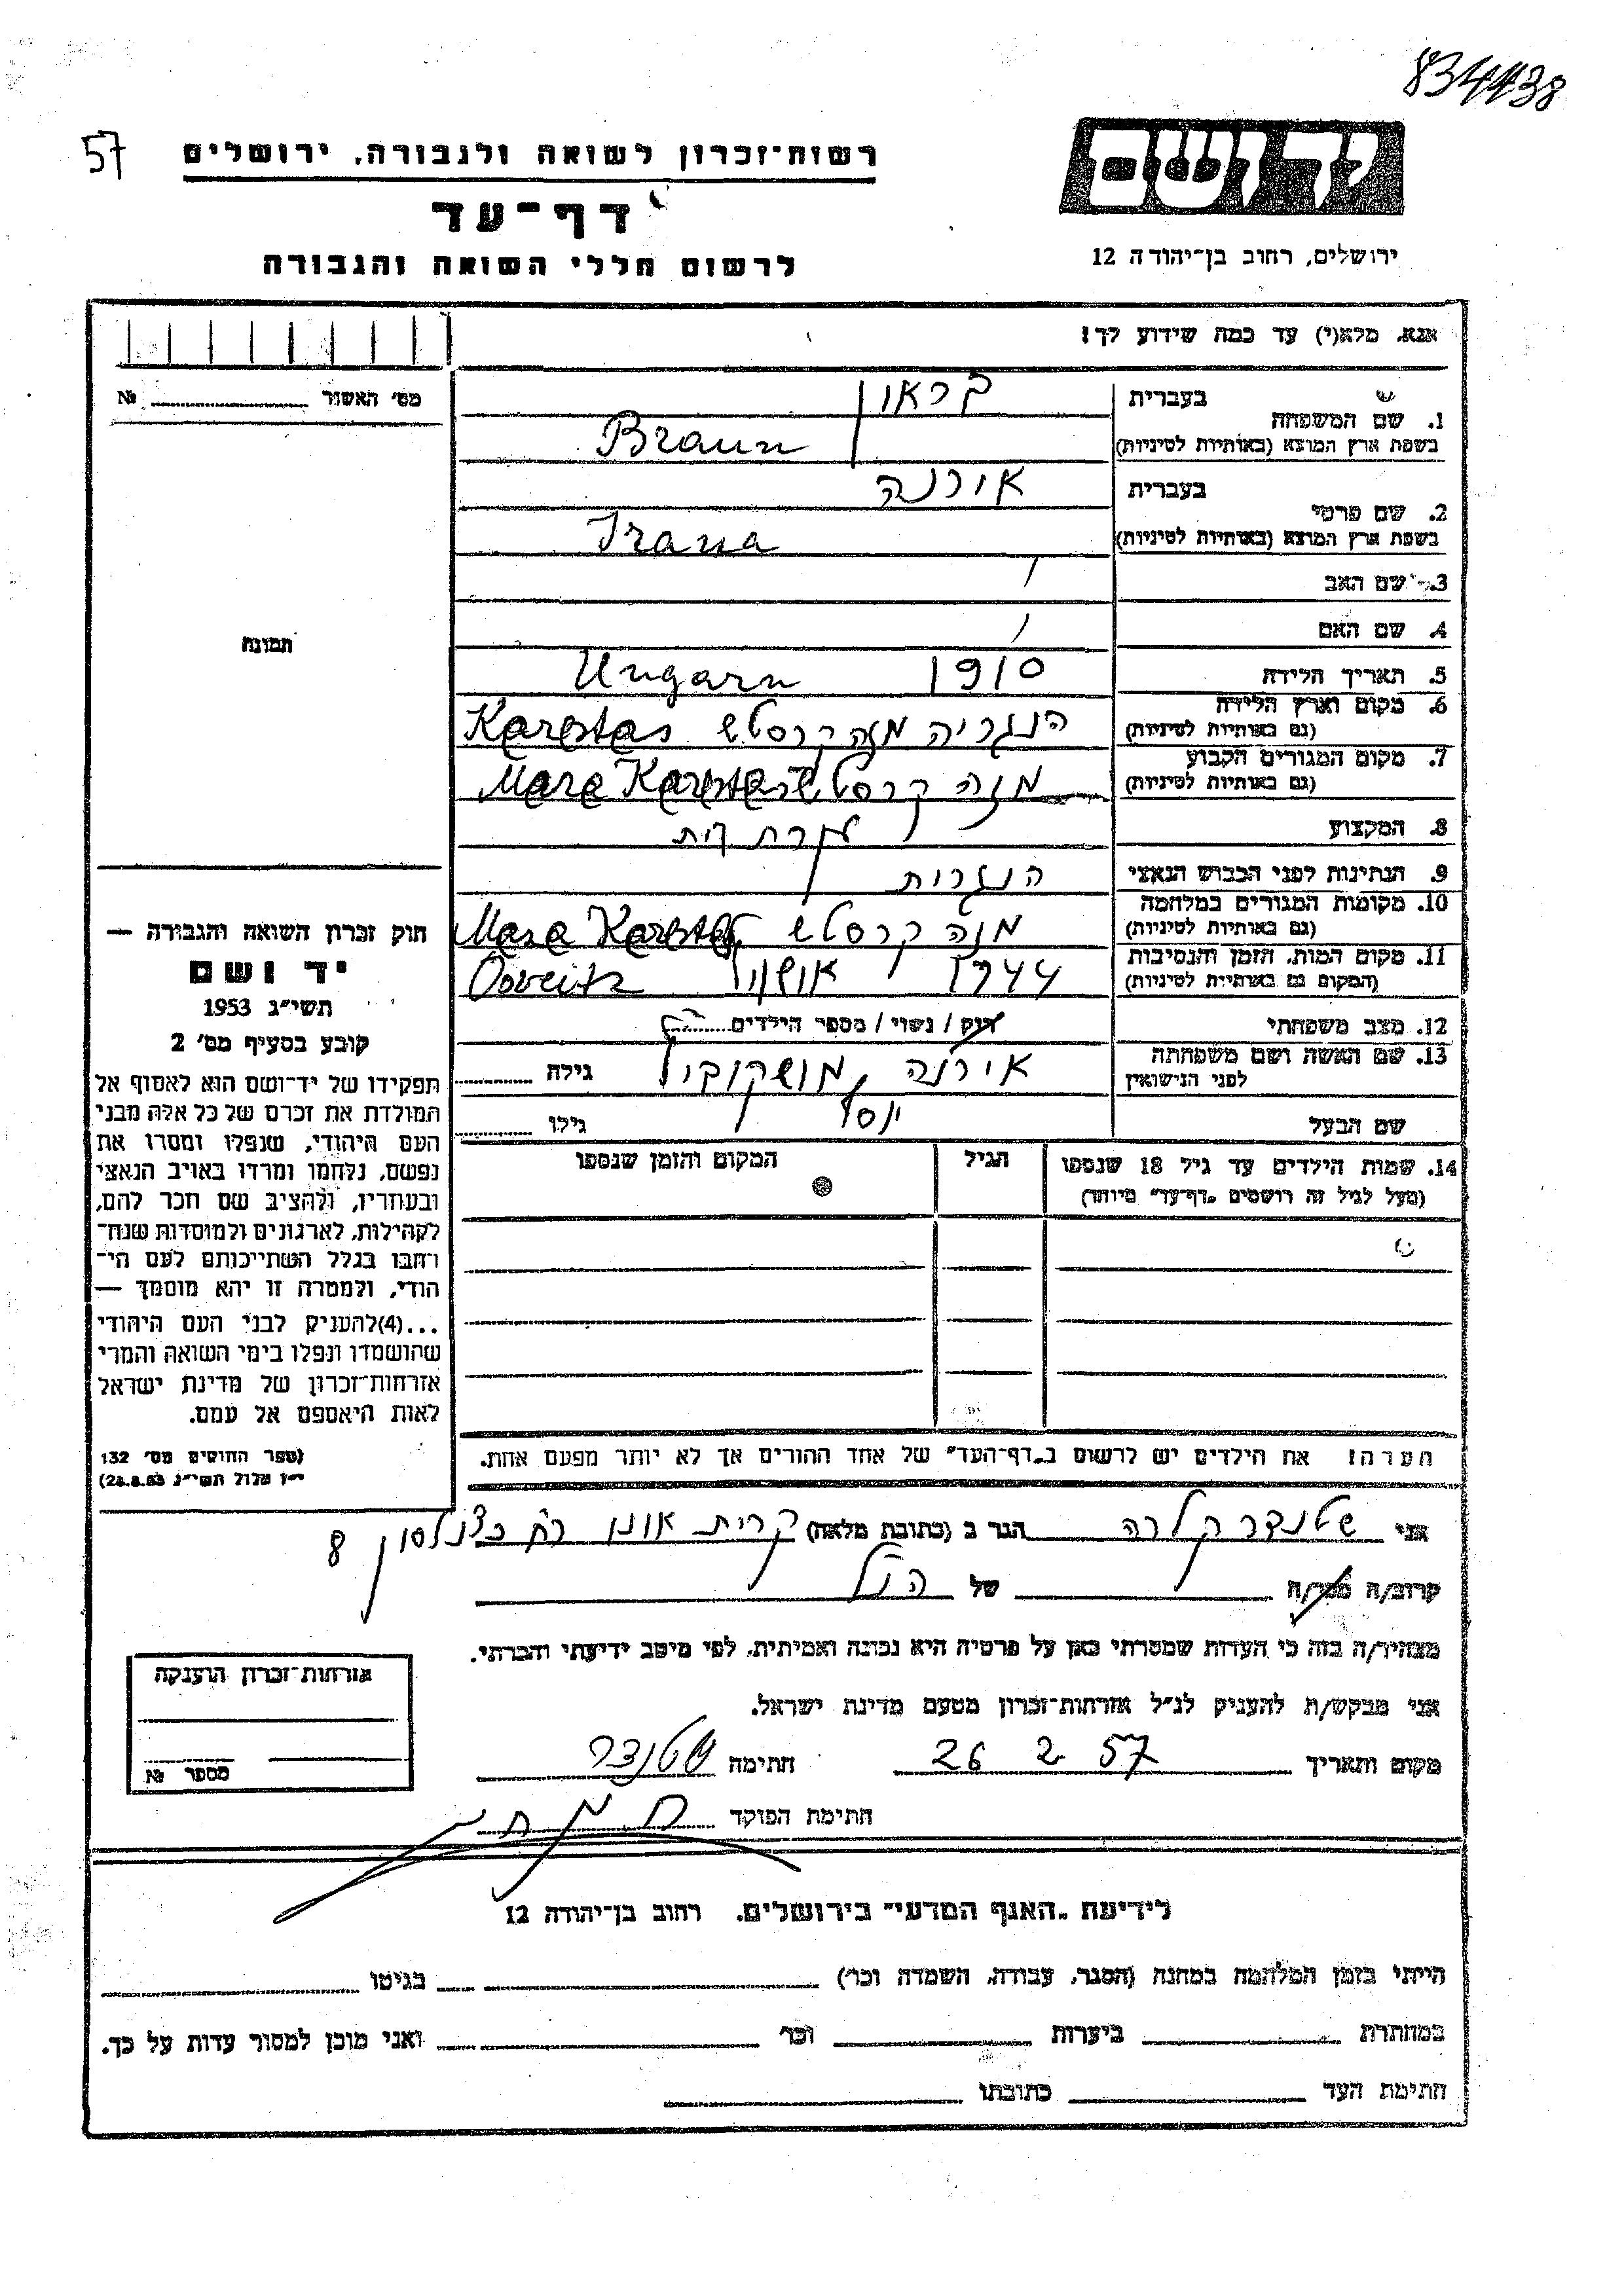 834438
57
רשות־זכרון לשואה ולגבורה, ירושלים
דף־עד
לרשום חללי השואה והגבורה
יד ושם
ירושלים, רחוב בן־יהודה 12
אנא, מלא(י) עד כמה שידוע לך!
מס' האשור № 
1. שם המשפחה
בעברית
בראון
בשפת ארץ המוצא (באותיות לטיניות)
Braun
2. שם פרטי
בעברית
אירנה
בשפת ארץ המוצא (באותיות לטיניות)
Irana
3. שם האב
4. שם האם
5. תאריך הלידה
1910 Ungarn
6. מקום וארץ הלידה
(גם באותיות לטיניות)
הונגריה מזה קרסטש Karstas
7. מקום המגורים הקבוע
(גם באותיות לטיניות)
מזה קרסטש
8. המקצוע
עקרת בית
9. הנתינות לפני הכבוש הנאצי
הונגרית
10. מקומות המגורים במלחמה
(גם באותיות לטיניות)
מזה קרסטש
11. מקום המות, הזמן והנסיבות
(המקום גם באותיות לטיניות)
1944
12. מצב משפחתי
רווק / נשוי / מספר הילדים
13. שם האשה ושם משפחתה
לפני הנישואין
אירנה מושקוביץ
גילה
שם הבעל
יוסף
גילו
14. שמות הילדים עד גיל 18 שנספו
(מעל לגיל זה רושמים "דף־עד" מיוחד)
הגיל
המקום והזמן שנספו
הערה! את הילדים יש לרשום ב"דף־העד" של אחד ההורים אך לא יותר מפעם אחת.
תמונה
חוק זכרון השואה והגבורה —
יד ושם
תשי"ג 1953
קובע בסעיף מס' 2
תפקידו של יד־ושם הוא לאסוף אל
המולדת את זכרם של כל אלה מבני
העם היהודי, שנפלו ומסרו את
נפשם, נלחמו ומרדו באויב הנאצי
ובעוזריו, ולהציב שם וזכר להם,
לקהילות, לארגונים ולמוסדות שנח־
רחבו בגלל השתייכותם לעם הי־
הודי, ולמטרה זו יהא מוסמך —
...(4)להעניק לבני העם היהודי
שהושמדו ונפלו בימי השואה והמרי
אזרחות־זכרון של מדינת ישראל
לאות היאספם אל עמם.
(ספר החוקים מס' 132
י"ז אלול תשי"ג 28.8.53)
אני שטנדר קלרה הגר ב (כתובת מלאה) קרית אונו רח כצנלסון 8
קרוב/ה מכר/ה של הנ"ל
מצהיר/ה בזה כי העדות שמסרתי כאן על פרטיה היא נכונה ואמיתית, לפי מיטב ידיעתי והכרתי.
אני מבקש/ת להעניק לנ"ל אזרחות־זכרון מטעם מדינת ישראל.
מקום ותאריך 26 2 57 חתימה שטנדר
חתימת הפוקד
אזרחות־זכרון הוענקה
מספר №
לידיעת "האגף המדעי" בירושלים, רחוב בן־יהודה 12
הייתי בזמן המלחמה במחנה (הסגר, עבודה, השמדה וכו') בגיטו
במחתרת ביערות וכו' ואני מוכן למסור עדות על כך.
חתימת העד כתובתו